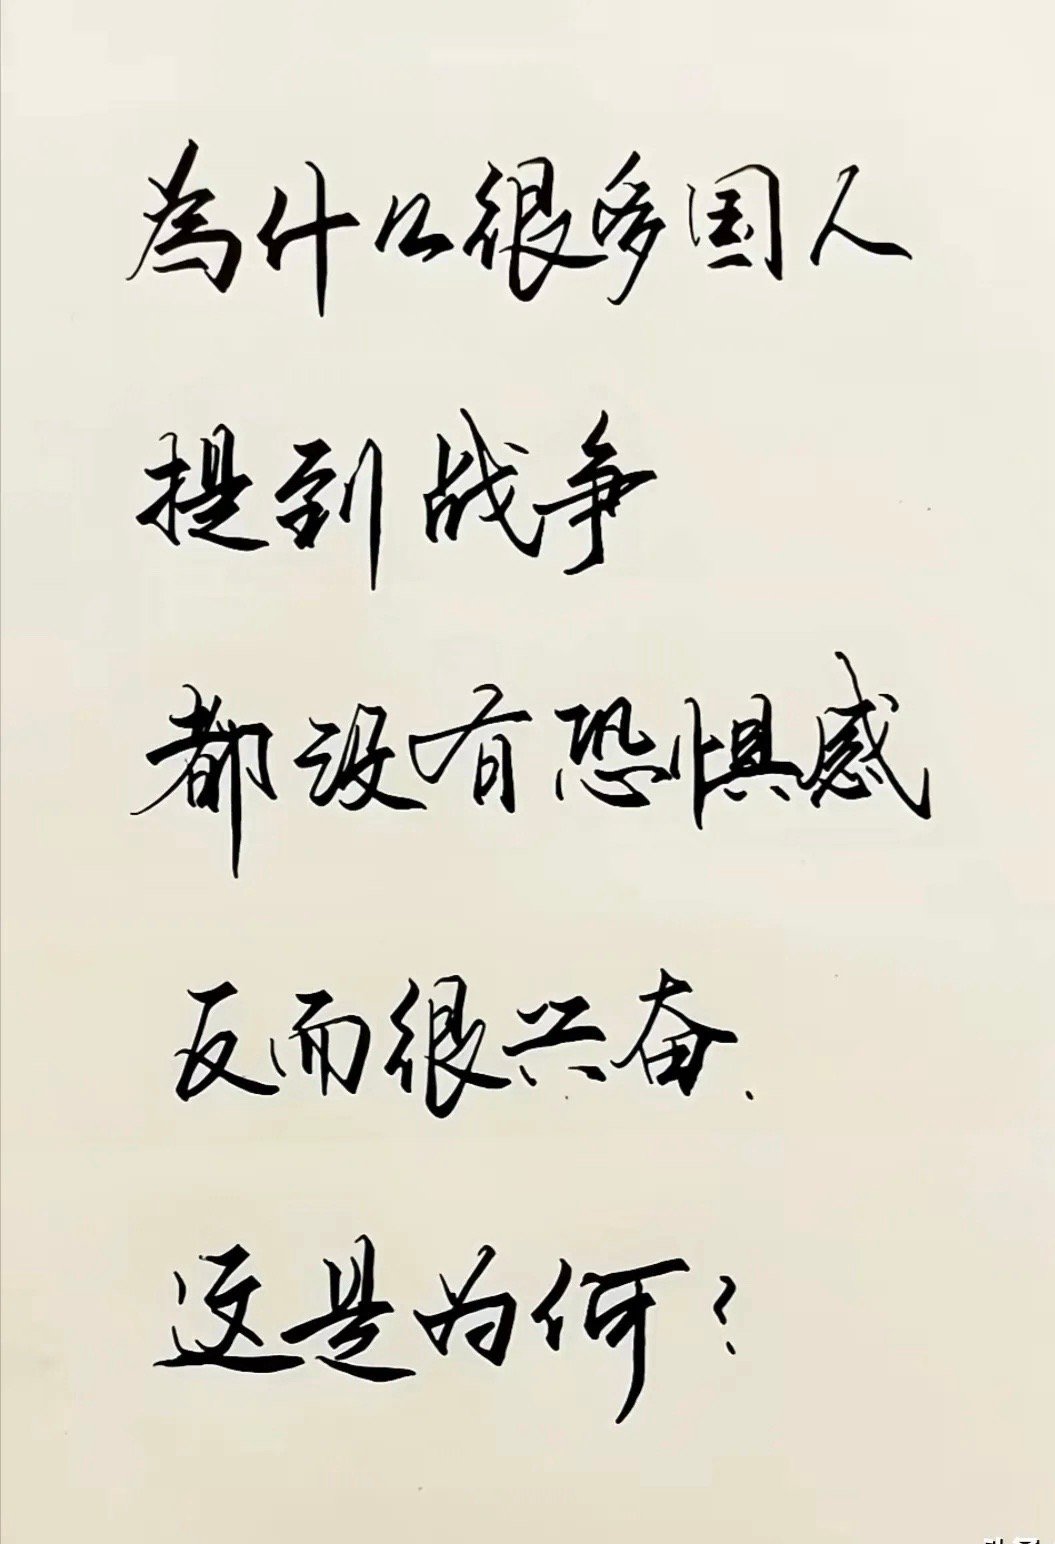 為什么很多国人
提到战争
都没有恐惧感
反而很兴奋.
这是为何?